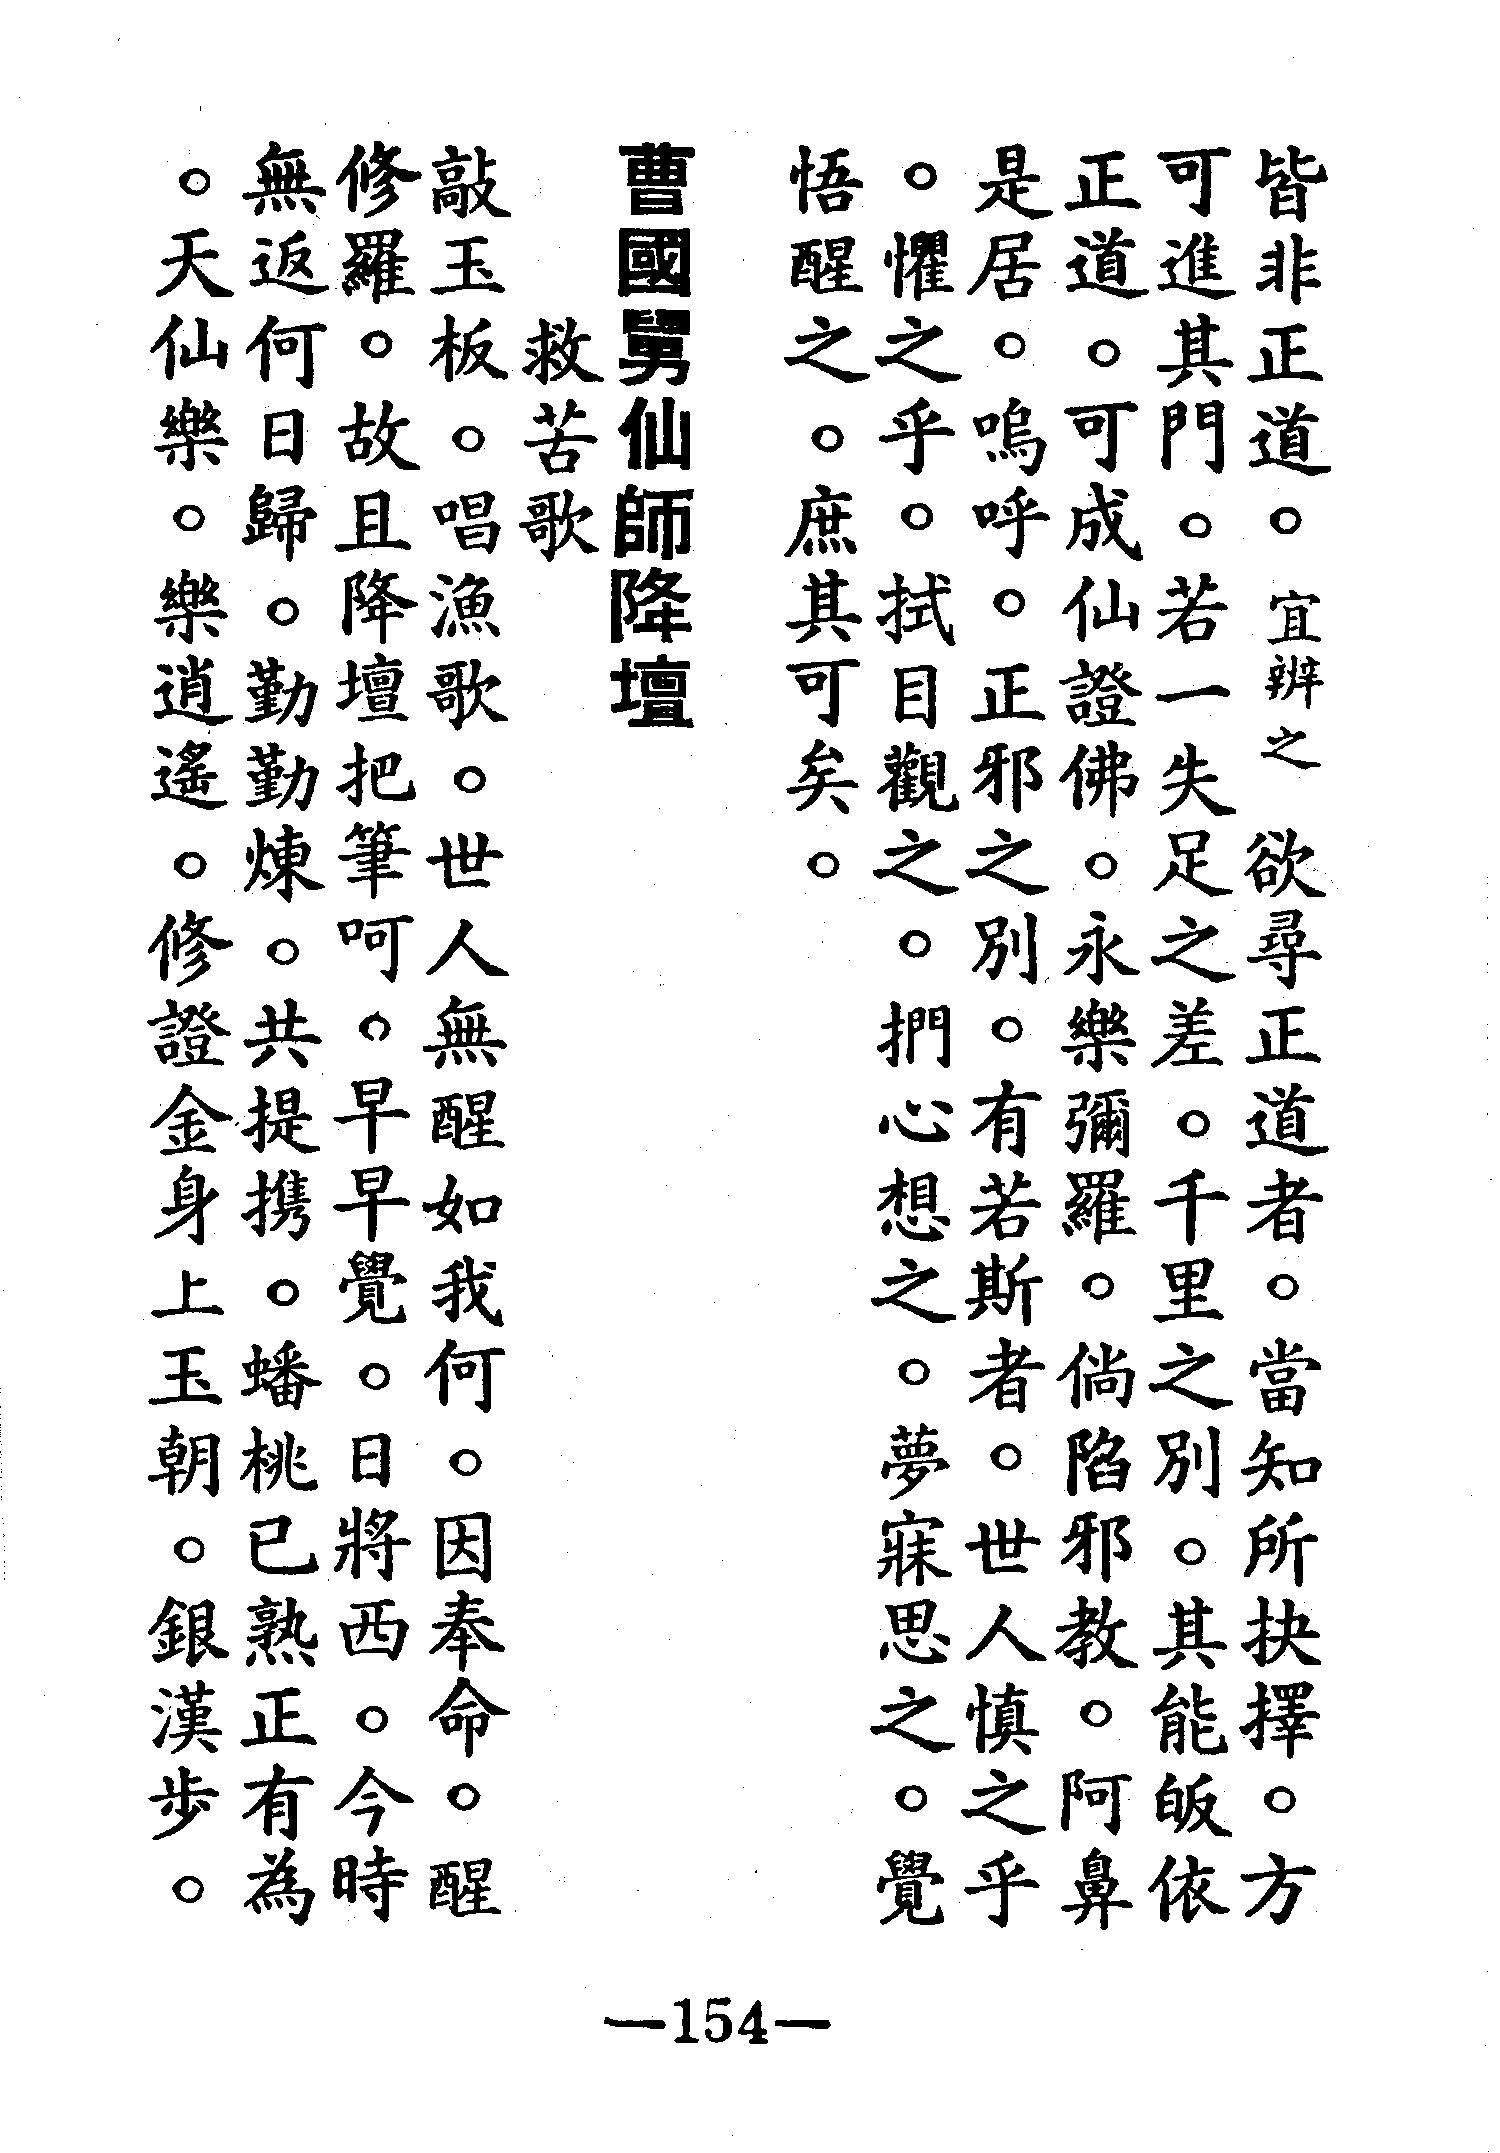 皆非正道。宜辨之欲尋正道者。當知所抉擇。方
可進其門。若一失足之差。千里之別。其能皈依
正道。可成仙證佛。永樂彌羅。倘陷邪教。阿鼻
是居。嗚呼。正邪之別。有若斯者。世人慎之乎
。懼之乎。拭目觀之。捫心想之。夢寐思之。覺
悟醒之。庶其可矣。
曹國舅仙師降壇
救苦歌
敲玉板。唱漁歌。世人無醒如我何。因奉命。醒
修羅。故且降壇把筆呵。早早覺。日將西。今時
無返何日歸。勤勤煉。共提携。蟠桃已熟正有為
。天仙樂。樂逍遙。修證金身上玉朝。銀漢步。
—154—